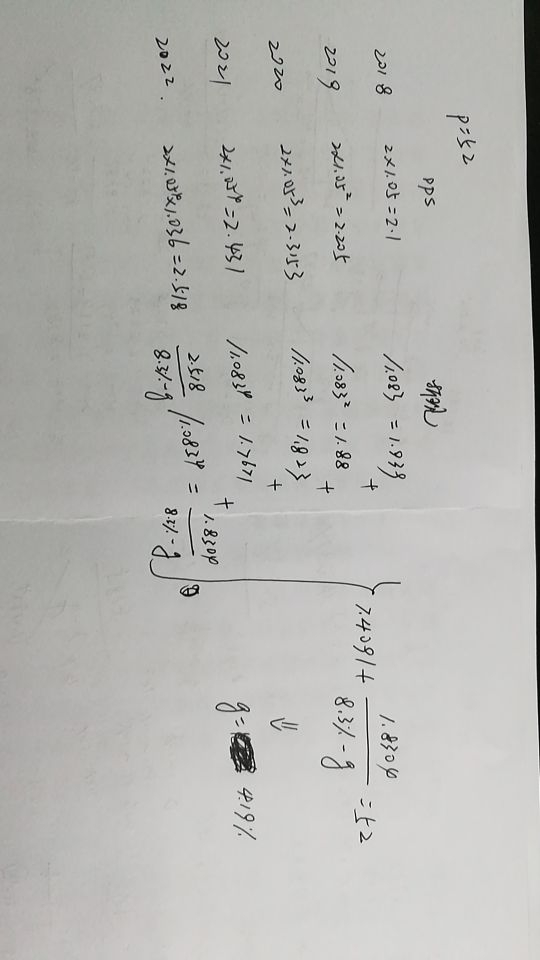 P=52
PPS
2018 2×1.05=2.1 /1.083 = 1.939 +
2019 2×1.05²=2.205 /1.083² = 1.88 +
2020 2×1.05³=2.3153 /1.083³ = 1.823 +
2021 2×1.05⁴=2.431 /1.083⁴ = 1.7671 +
2022. 2×1.05⁴×1.036=2.518 2.518/(8.3%-g) /1.083⁴ = 1.8304/(8.3%-g)
7.4091+ 1.8304/(8.3%-g) =52
⇓
g= 4.19%